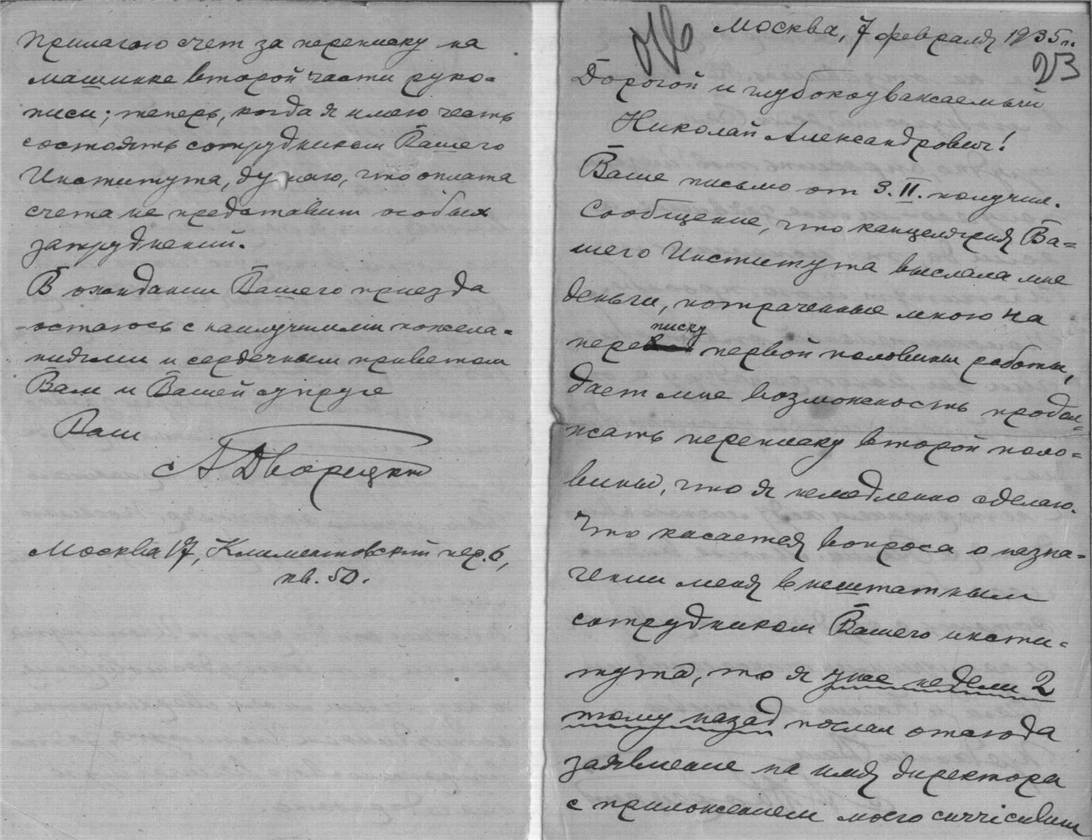 Москва, 7 февраля 1935 г.
23
Дорогой и глубокоуважаемый
Николай Александрович!
Ваше письмо от 3.II. получил.
Сообщение, что канцелярия Ва-
шего Института выслала мне
деньги, потраченные мною на
переписку первой половины работы,
дает мне возможность продол-
жать переписку второй поло-
вины, что я немедленно сделаю.
Что касается вопроса о назна-
чении меня внештатным
сотрудником Вашего инсти-
тута, то я уже недели 2
тому назад послал отсюда
заявление на имя директора
с приложением моего curriculum
Прилагаю счет за переписку на
машинке второй части руко-
писи; теперь, когда я имею честь
состоять сотрудником Вашего
Института, думаю, что оплата
счета не представит особых
затруднений.
В ожидании Вашего приезда
остаюсь с наилучшими пожела-
ниями и сердечным приветом
Вам и Вашей супруге
Ваш
А. Дворецкий
Москва 17, Климентовский пер. 6,
кв. 50.